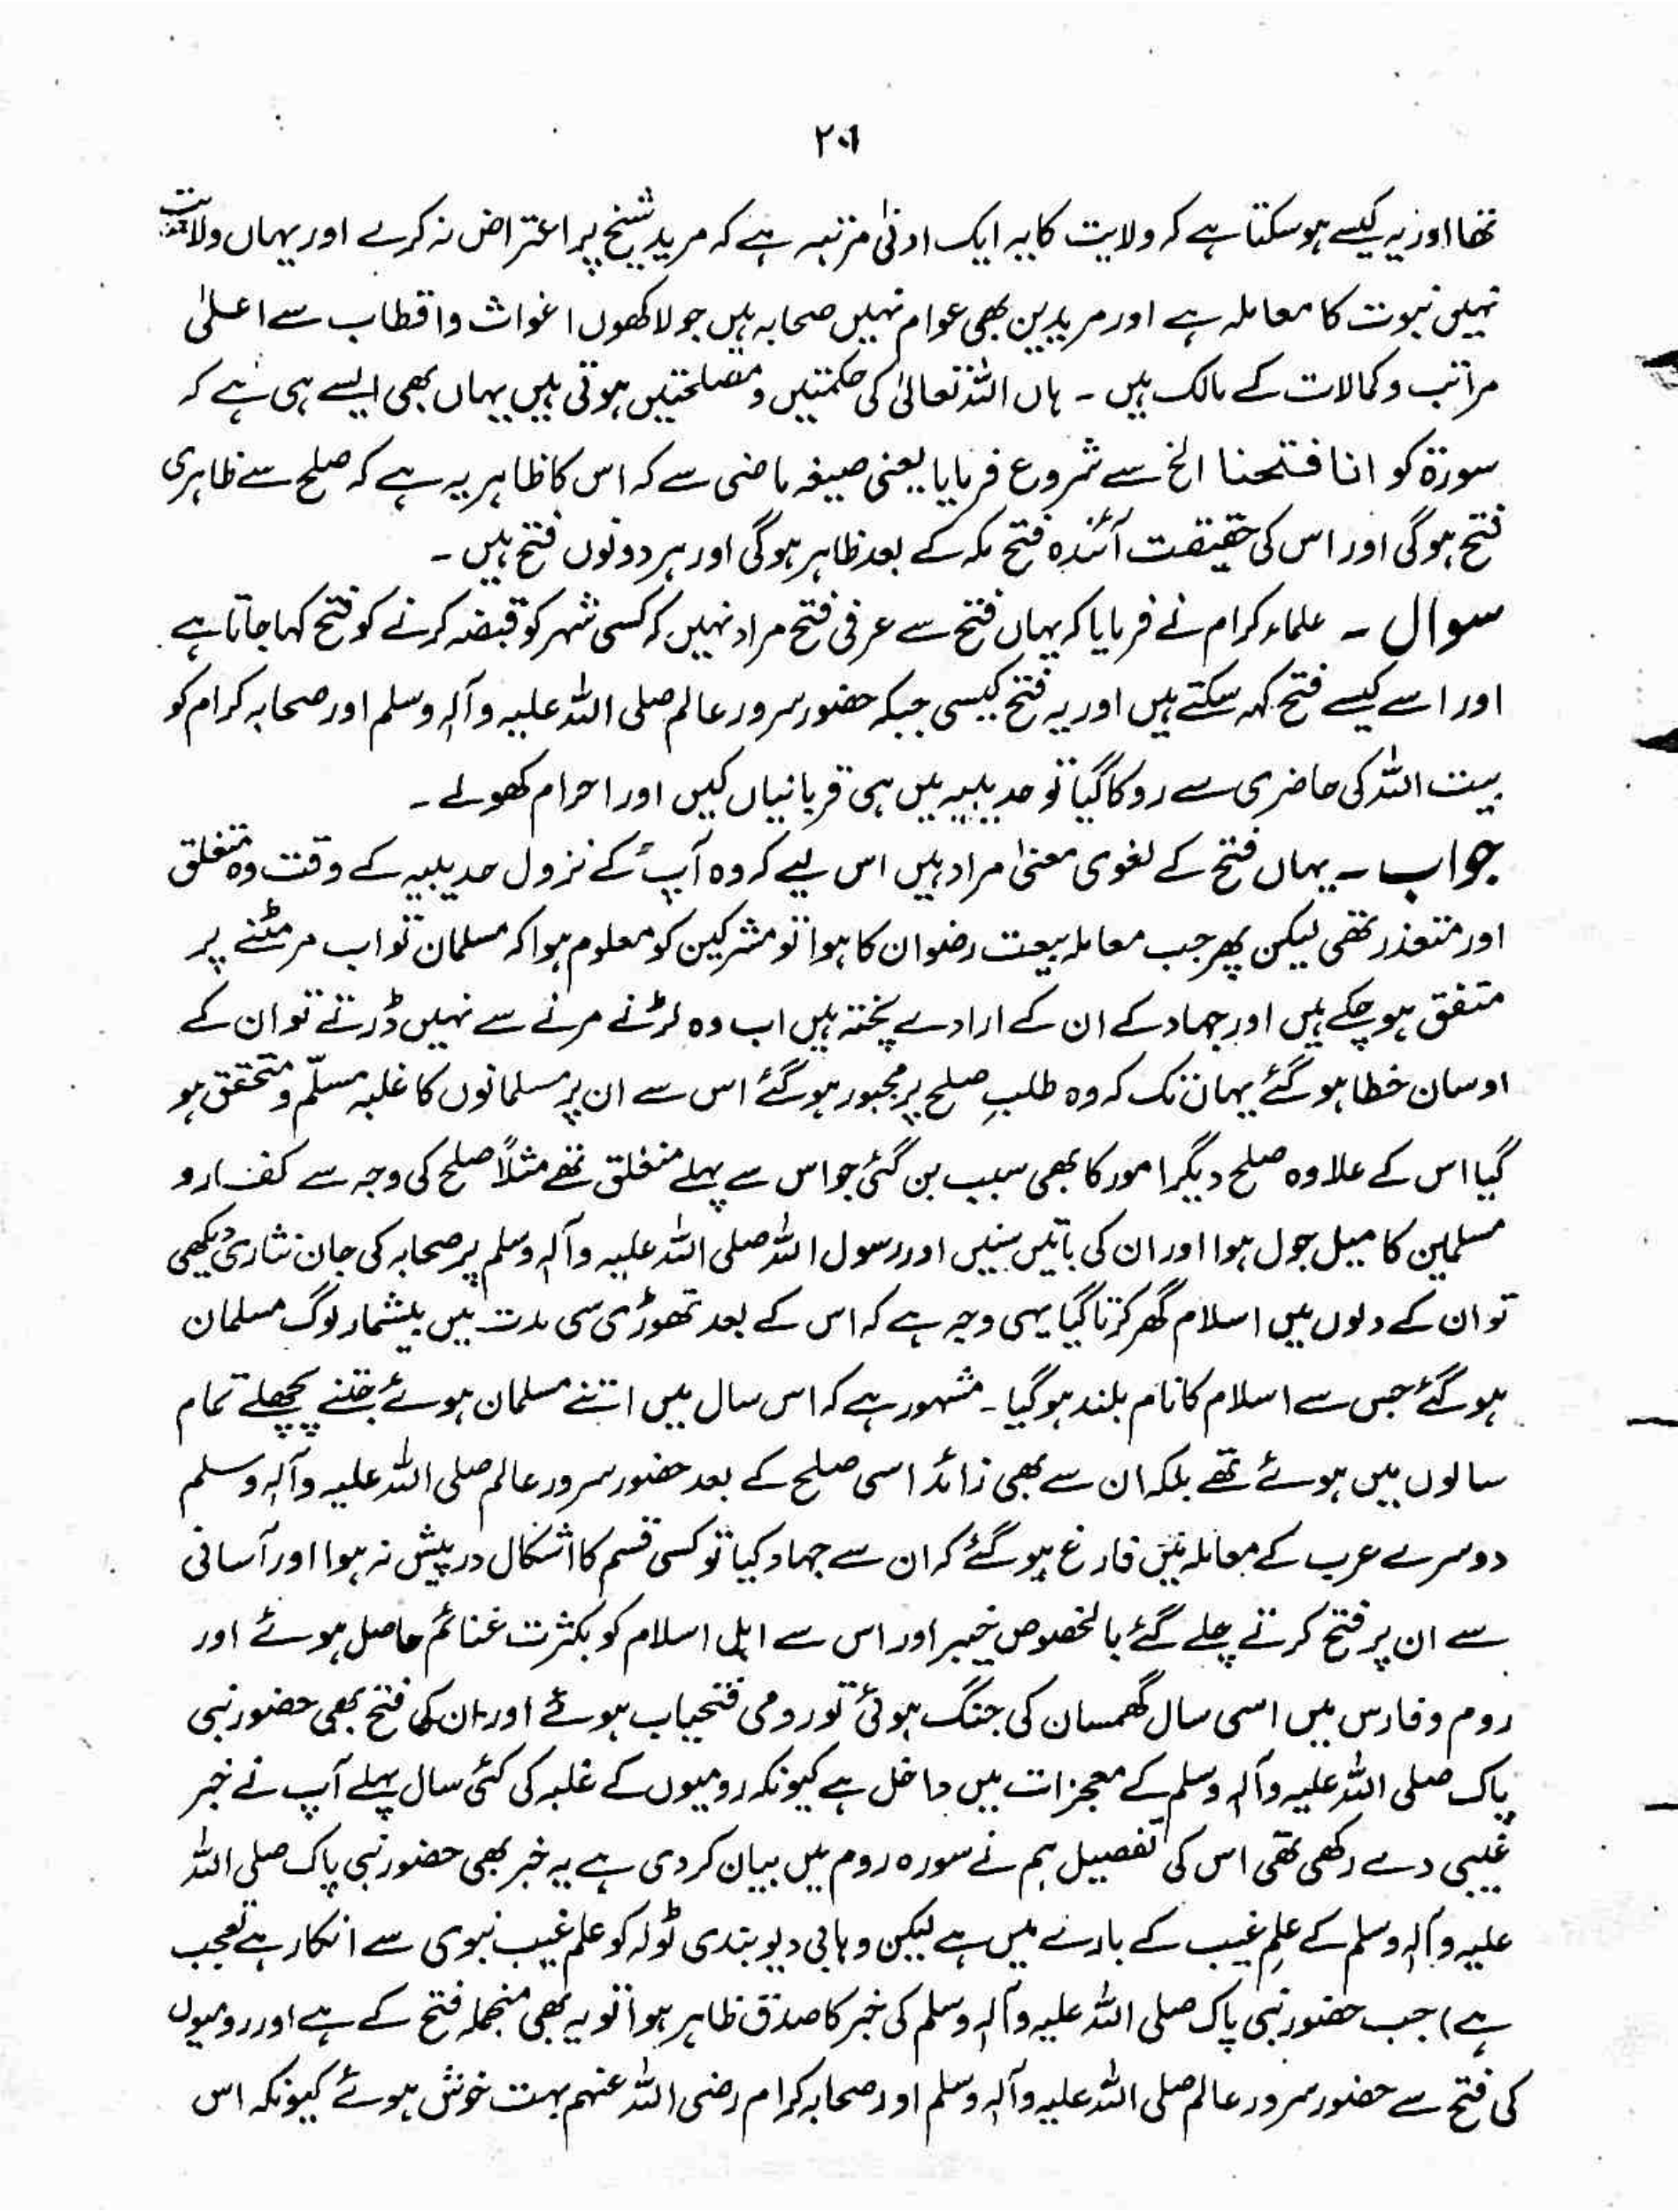 ۲۰۱
تھا اور یہ کیسے ہوسکتا ہے کہ ولایت کا یہ ایک ادنیٰ مرتبہ ہے کہ مرید شیخ پر اعتراض نہ کرے اور یہاں ولایت
نہیں نبوت کا معاملہ ہے اور مریدین بھی عوام نہیں صحابہ ہیں جو لاکھوں اغواث و اقطاب سے اعلیٰ
مراتب و کمالات کے مالک ہیں ۔ ہاں اللہ تعالیٰ کی حکمتیں و مصلحتیں ہوتی ہیں یہاں بھی ایسے ہی ہے کہ
سورۃ کو انا فتحنا الخ سے شروع فرمایا یعنی صیغہ ماضی سے کہ اس کا ظاہر یہ ہے کہ صلح سے ظاہری
فتح ہوگی اور اس کی حقیقت آئندہ فتح مکہ کے بعد ظاہر ہوگی اور ہر دونوں فتح ہیں ۔
سوال ۔ علماء کرام نے فرمایا کہ یہاں فتح سے عرفی فتح مراد نہیں کہ کسی شہر کو قبضہ کرنے کو فتح کہا جاتا ہے
اور اسے کیسے فتح کہہ سکتے ہیں اور یہ فتح کیسی جبکہ حضور سرور عالم صلی اللہ علیہ وآلہ وسلم اور صحابہ کرام کو
بیت اللہ کی حاضری سے روکا گیا تو حدیبیہ میں ہی قربانیاں کیں اور احرام کھولے ۔
جواب ۔ یہاں فتح کے لغوی معنیٰ مراد ہیں اس لیے کہ وہ آپ کے نزول حدیبیہ کے وقت وہ منغلق
اور متعذر تھی لیکن پھر جب معاملہ بیعت رضوان کا ہوا تو مشرکین کو معلوم ہوا کہ مسلمان تو اب مر مٹنے پر
متفق ہو چکے ہیں اور جہاد کے ان کے ارادے پختہ ہیں اب وہ لڑنے مرنے سے نہیں ڈرتے تو ان کے
اوسان خطا ہو گئے یہاں تک کہ وہ طلبِ صلح پر مجبور ہو گئے اس سے ان پر مسلمانوں کا غلبہ مسلّم و متحقق ہو
گیا اس کے علاوہ صلح دیگر امور کا بھی سبب بن گئی جو اس سے پہلے منغلق تھے مثلاً صلح کی وجہ سے کفار و
مسلمین کا میل جول ہوا اور ان کی باتیں سنیں اور رسول اللہ صلی اللہ علیہ وآلہ وسلم پر صحابہ کی جان نثاری دیکھی
تو ان کے دلوں میں اسلام گھر کرتا گیا یہی وجہ ہے کہ اس کے بعد تھوڑی سی مدت میں بیشمار لوگ مسلمان
ہو گئے جس سے اسلام کا نام بلند ہو گیا ۔ مشہور ہے کہ اس سال میں اتنے مسلمان ہوئے جتنے پچھلے تمام
سالوں میں ہوئے تھے بلکہ ان سے بھی زائد اسی صلح کے بعد حضور سرور عالم صلی اللہ علیہ وآلہ وسلم
دوسرے عرب کے معاملہ میں فارغ ہو گئے کہ ان سے جہاد کیا تو کسی قسم کا اشکال درپیش نہ ہوا اور آسانی
سے ان پر فتح کرتے چلے گئے بالخصوص خیبر اور اس سے اہل اسلام کو بکثرت غنائم حاصل ہوئے اور
روم و فارس میں اسی سال گھمسان کی جنگ ہوئی تو رومی فتحیاب ہوئے اور ان کی فتح بھی حضور نبی
پاک صلی اللہ علیہ وآلہ وسلم کے معجزات میں داخل ہے کیونکہ رومیوں کے غلبہ کی کئی سال پہلے آپ نے خبر
غیبی دے رکھی تھی اس کی تفصیل ہم نے سورہ روم میں بیان کردی ہے یہ خبر بھی حضور نبی پاک صلی اللہ
علیہ وآلہ وسلم کے علمِ غیب کے بارے میں ہے لیکن وہابی دیوبندی ٹولہ کو علم غیب نبوی سے انکار ہے تعجب
ہے) جب حضور نبی پاک صلی اللہ علیہ وآلہ وسلم کی خبر کا صدق ظاہر ہوا تو یہ بھی منجملہ فتح کے ہے اور رومیوں
کی فتح سے حضور سرور عالم صلی اللہ علیہ وآلہ وسلم اور صحابہ کرام رضی اللہ عنہم بہت خوش ہوئے کیونکہ اس